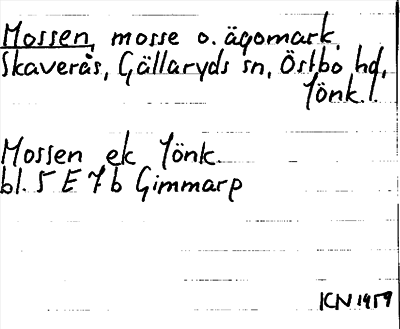 Mossen, mosse o. ägomark.
Skaverås, Gällaryds sn, Östbo hd,
Jönk. l.
Mossen ek Jönk.
bl. 5 E 7 b Gimmarp
KN 1959